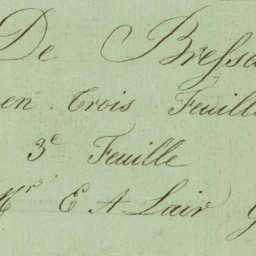 De Bressa
en Trois Feuill
3e Feuille
Mr E A Lair G